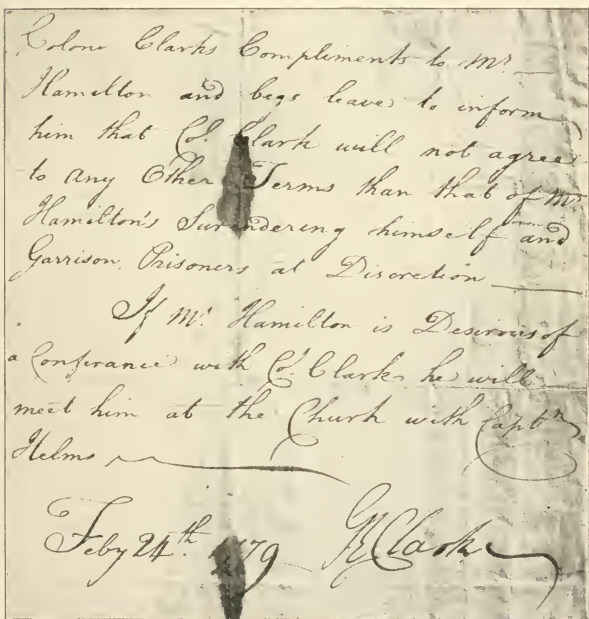 Colone Clarks Compliments to Mr.
Hamilton and begs leave to inform
him that Col. Clark will not agree
to any Other Terms than that of Mr.
Hamilton's Surindering himself and
Garrison, Prisoners at Discretion
If Mr. Hamilton is Desirous of
a Conferance with Col. Clark he will
meet him at the Church with Captn
Helms
Feby 24th. 1779 GR Clark